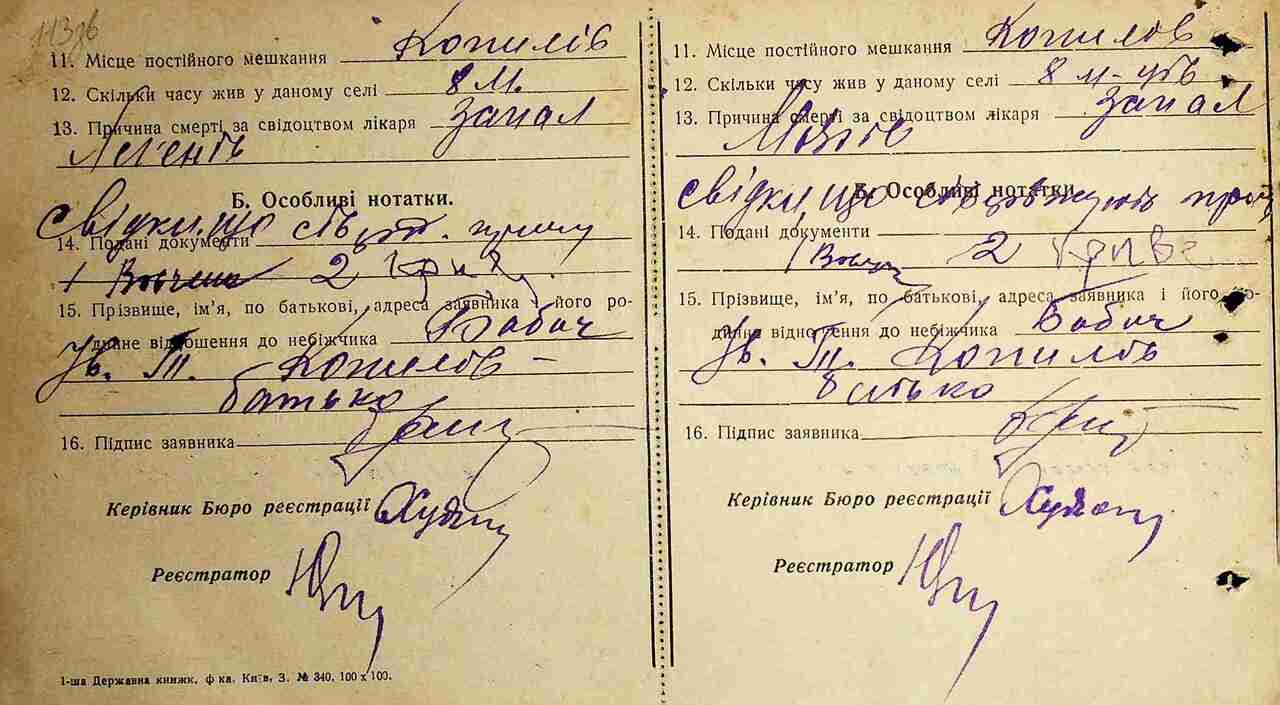 11. Місце постійного мешкання Копилів
12. Скільки часу жив у даному селі 8 м.
13. Причина смерті за свідоцтвом лікаря запал
Легенів
Б. Особливі нотатки.
Свідки, що
14. Подані документи
1 2
15. Прізвище, ім'я, по батькові, адреса заявника і його ро-
динне відношення до небіжчика Бабич
Копилов –
батько
16. Підпис заявника
Керівник Бюро реєстрації
Реєстратор
1-ша Державна книжк. ф-ка. Київ, З. № 340, 100 x 100.
11. Місце постійного мешкання Копилов
12. Скільки часу жив у даному селі 8 м-ців
13. Причина смерті за свідоцтвом лікаря запал
Б. Особливі нотатки.
Свідки, що
14. Подані документи
1 2
15. Прізвище, ім'я, по батькові, адреса заявника і його ро-
динне відношення до небіжчика Бабич
Копилов
батько
16. Підпис заявника
Керівник Бюро реєстрації
Реєстратор